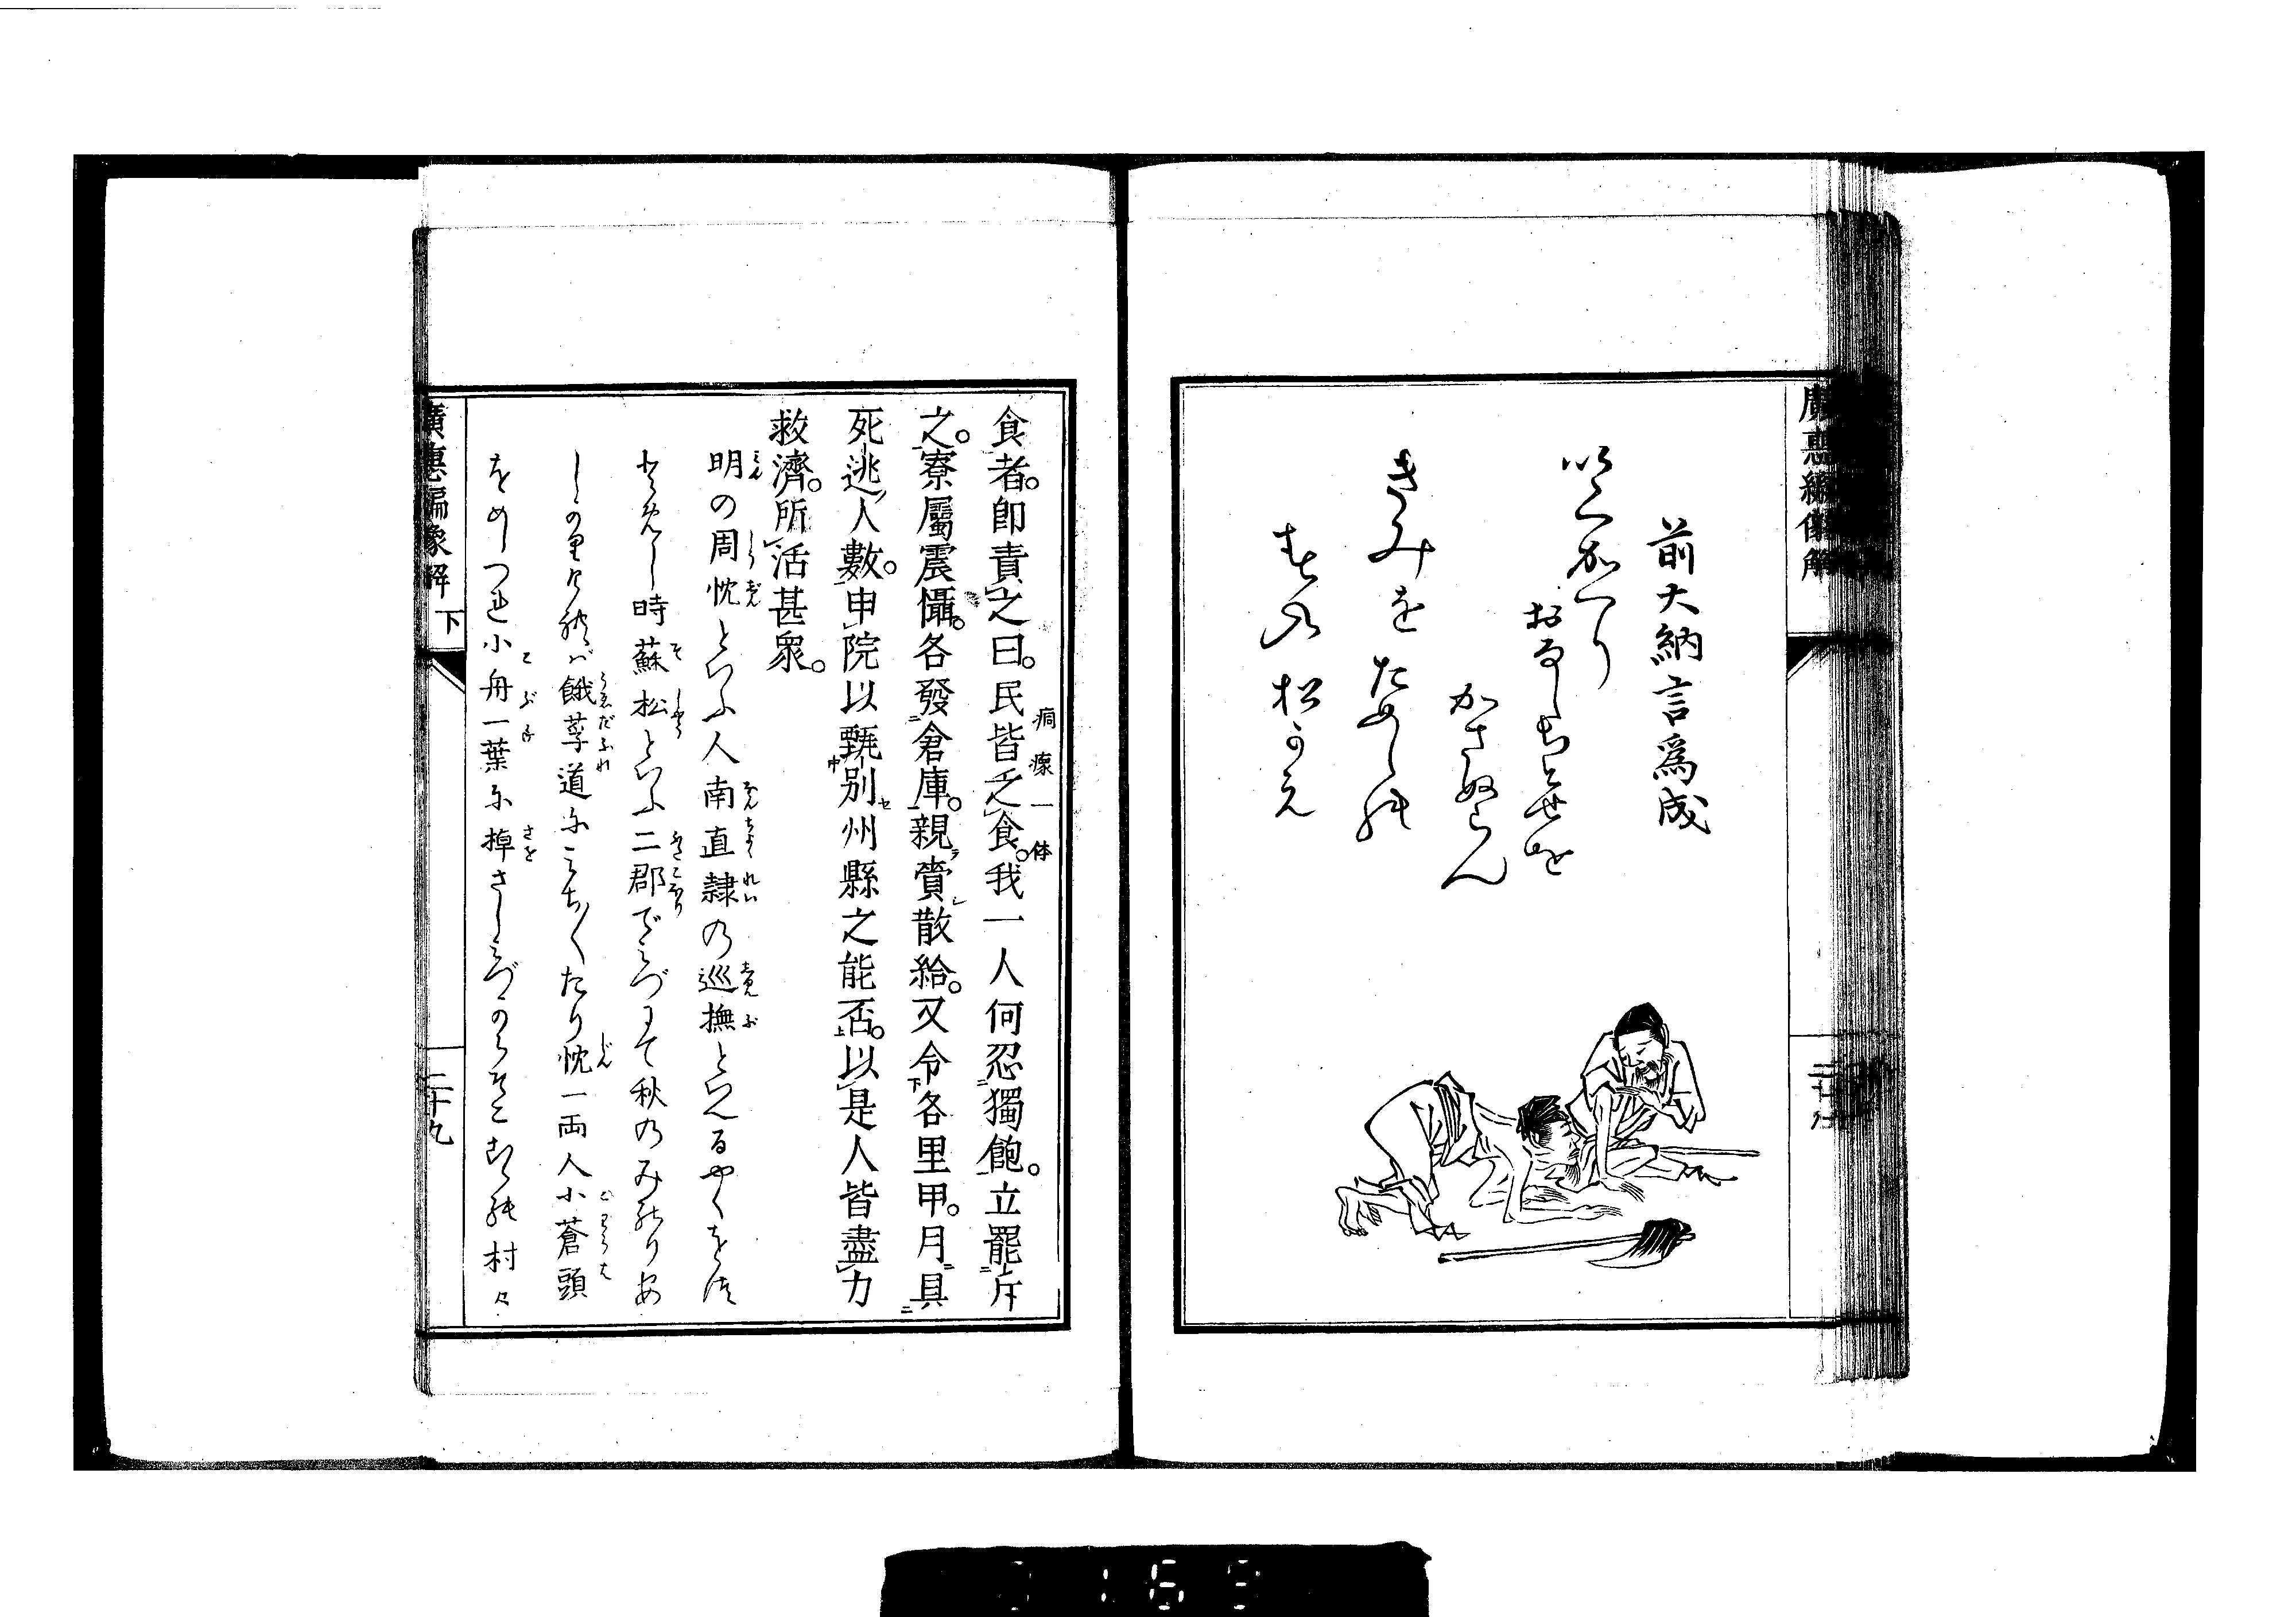 廣惠編像解
前大納言爲成
いくかへり
おなしちとせを
かさぬらん
きみをためしの
すゑの松かえ
食者。卽責之曰。民皆乏食。我一人何忍獨飽。立罷斥
痌瘝一体
之。寮屬震懾。各發倉庫。親賫散給。又令各里甲。月具
死逃人數。申院以甄別州縣之能否。以是人皆盡力
救濟。所活甚衆。
明の周忱といふ人南直隸の巡撫といへるやくをつ
とめし時蘇松といふ二郡でみづにて秋のみのりあ
しかりければ餓莩道にみちたり忱一両人小蒼頭
をめしつれ小舟一葉に棹さしみづから村々
廣惠編象解 下
二十九